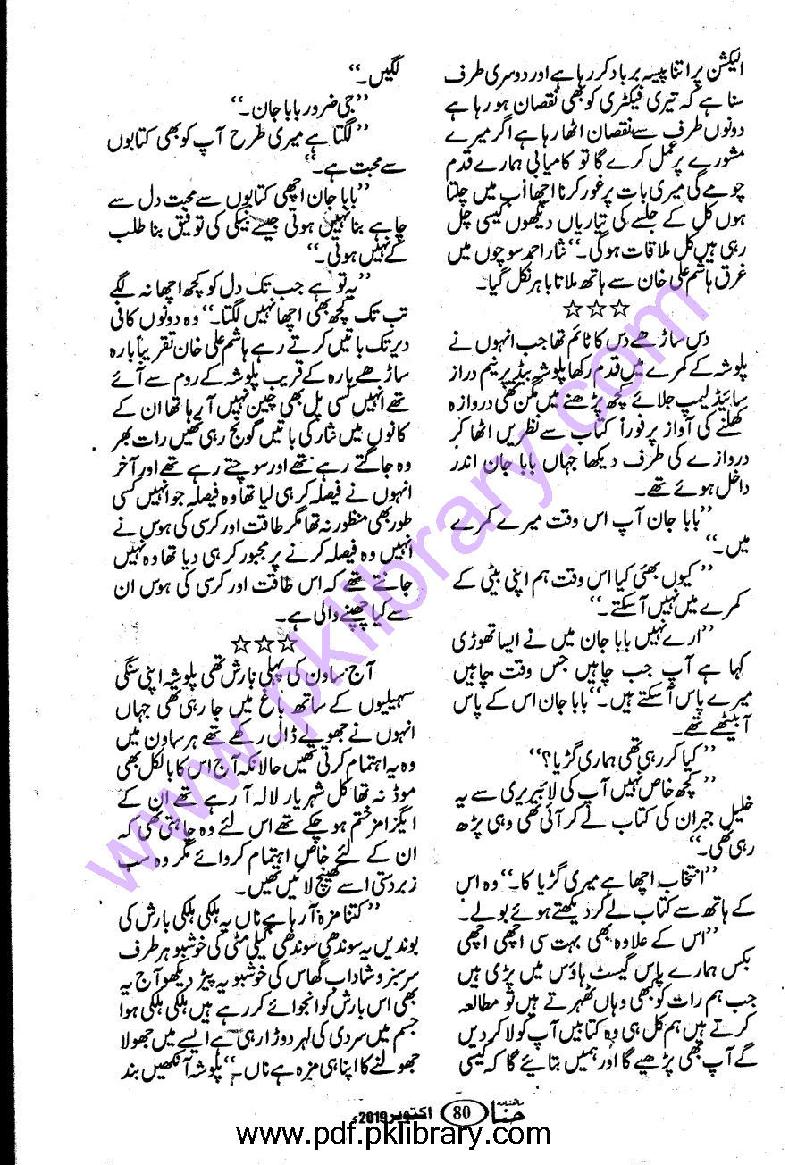 الیکشن پر اتنا پیسہ برباد کر رہا ہے اور دوسری طرف
سنا ہے کہ تیری فیکٹری کو بھی نقصان ہو رہا ہے
دونوں طرف سے نقصان اٹھا رہا ہے اگر میرے
مشورے پر عمل کرے گا تو کامیابی ہمارے قدم
چومے گی میری بات پر غور کرنا اچھا اب میں چلتا
ہوں کل کے جلسے کی تیاریاں دیکھوں کیسی چل
رہی ہیں کل ملاقات ہو گی۔“ نثار احمد سوچوں میں
غرق ہاشم علی خان سے ہاتھ ملاتا باہر نکل گیا۔
☆☆☆
دس ساڑھے دس کا ٹائم تھا جب انہوں نے
پلوشہ کے کمرے میں قدم رکھا پلوشہ بیڈ پر نیم دراز
سائیڈ لیمپ جلائے کچھ پڑھنے میں مگن تھی دروازہ
کھلنے کی آواز پر فوراً کتاب سے نظریں اٹھا کر
دروازے کی طرف دیکھا جہاں بابا جان اندر
داخل ہوئے تھے۔
”بابا جان آپ اس وقت میرے کمرے
میں۔“
”کیوں بھئی کیا اس وقت ہم اپنی بیٹی کے
کمرے میں نہیں آ سکتے۔“
”ارے نہیں بابا جان میں نے ایسا تھوڑی
کہا ہے آپ جب چاہیں جس وقت چاہیں
میرے پاس آ سکتے ہیں۔“ بابا جان اس کے پاس
آ بیٹھے تھے۔
”کیا کر رہی تھی ہماری گڑیا؟“
”کچھ خاص نہیں آپ کی لائبریری سے یہ
خلیل جبران کی کتاب لے کر آئی تھی وہی پڑھ
رہی تھی۔“
”انتخاب اچھا ہے میری گڑیا کا۔“ وہ اس
کے ہاتھ سے کتاب لے کر دیکھتے ہوئے بولے۔
”اس کے علاوہ بھی بہت سی اچھی اچھی
بکس ہمارے پاس گیسٹ ہاؤس میں پڑی ہیں
جب ہم رات کو بھی وہاں ٹھہرتے ہیں تو مطالعہ
کرتے ہیں ہم کل ہی وہ کتابیں آپ کو لا کر دیں
گے آپ بھی پڑھیے گا اور ہمیں بتائیے گا کہ کیسی
لگیں۔“
”جی ضرور بابا جان۔“
”لگتا ہے میری طرح آپ کو بھی کتابوں
سے محبت ہے۔“
”بابا جان اچھی کتابوں سے محبت دل سے
چاہے بنا نہیں ہوتی جیسے نیکی کی توفیق بنا طلب
کے نہیں ہوتی۔“
”یہ تو ہے جب تک دل کو کچھ اچھا نہ لگے
تب تک کچھ بھی اچھا نہیں لگتا۔“ وہ دونوں کافی
دیر تک باتیں کرتے رہے ہاشم علی خان تقریباً بارہ
ساڑھے بارہ کے قریب پلوشہ کے روم سے آئے
تھے انہیں کسی پل بھی چین نہیں آ رہا تھا ان کے
کانوں میں نثار کی باتیں گونج رہی تھیں رات بھر
وہ جاگتے رہے تھے اور سوچتے رہے تھے اور آخر
انہوں نے فیصلہ کر ہی لیا تھا وہ فیصلہ جو انہیں کسی
طور بھی منظور نہ تھا مگر طاقت اور کرسی کی ہوس نے
انہیں وہ فیصلہ کرنے پر مجبور کر ہی دیا تھا وہ نہیں
جانتے تھے کہ اس طاقت اور کرسی کی ہوس ان
سے کیا چھیننے والی ہے۔
☆☆☆
آج ساون کی پہلی بارش تھی پلوشہ اپنی سنگی
سہیلیوں کے ساتھ باغ میں جا رہی تھی جہاں
انہوں نے جھولے ڈال رکھے تھے ہر ساون میں
وہ یہ اہتمام کرتی تھیں حالانکہ آج اس کا بالکل بھی
موڈ نہ تھا کل شہریار لالہ آ رہے تھے ان کے
ایگزامز ختم ہو چکے تھے اس لئے وہ چاہتی تھی کہ
ان کے لئے خاص اہتمام کروائے مگر وہ سب
زبردستی اسے کھینچ لائیں تھیں۔
”کتنا مزہ آ رہا ہے ناں یہ ہلکی ہلکی بارش کی
بوندیں یہ سوندھی سوندھی گیلی مٹی کی خوشبو ہر طرف
سرسبز و شاداب گھاس کی خوشبو یہ پیڑ دیکھو آج یہ
بھی اس بارش کو انجوائے کر رہے ہیں ہلکی ہلکی ہوا
جسم میں سردی کی لہر دوڑا رہی ہے ایسے میں جھولا
جھولنے کا اپنا ہی مزہ ہے ناں۔“ پلوشہ آنکھیں بند
ماہنامہ حنا 80 اکتوبر 2019ء
www.pklibrary.com
www.pdf.pklibrary.com